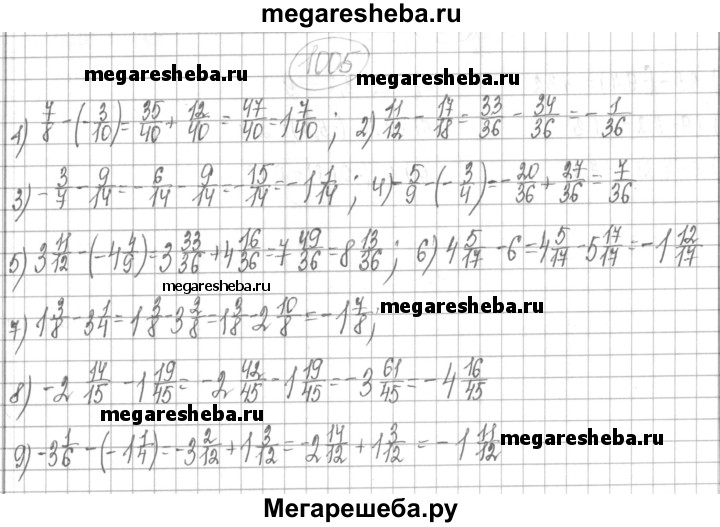 megaresheba.ru
1005
megaresheba.ru megaresheba.ru
1) 7/8 - (-3/10) = 35/40 + 12/40 = 47/40 = 1 7/40; 2) 11/12 - 17/18 = 33/36 - 34/36 = -1/36
3) -3/7 - 9/14 = -6/14 - 9/14 = -15/14 = -1 1/14; 4) -5/9 - (-3/4) = -20/36 + 27/36 = 7/36
5) 3 11/12 - (-4 4/9) = 3 33/36 + 4 16/36 = 7 49/36 = 8 13/36; 6) 4 5/17 - 6 = 4 5/17 - 5 17/17 = -1 12/17
megaresheba.ru
7) 1 3/8 - 3 1/4 = 1 3/8 - 3 2/8 = 1 3/8 - 2 10/8 = -1 7/8;
megaresheba.ru
8) -2 14/15 - 1 19/45 = -2 42/45 - 1 19/45 = -3 61/45 = -4 16/45
megaresheba.ru
9) -3 1/6 - (-1 1/4) = -3 2/12 + 1 3/12 = -2 14/12 + 1 3/12 = -1 11/12
megaresheba.ru
Мегарешеба.ру